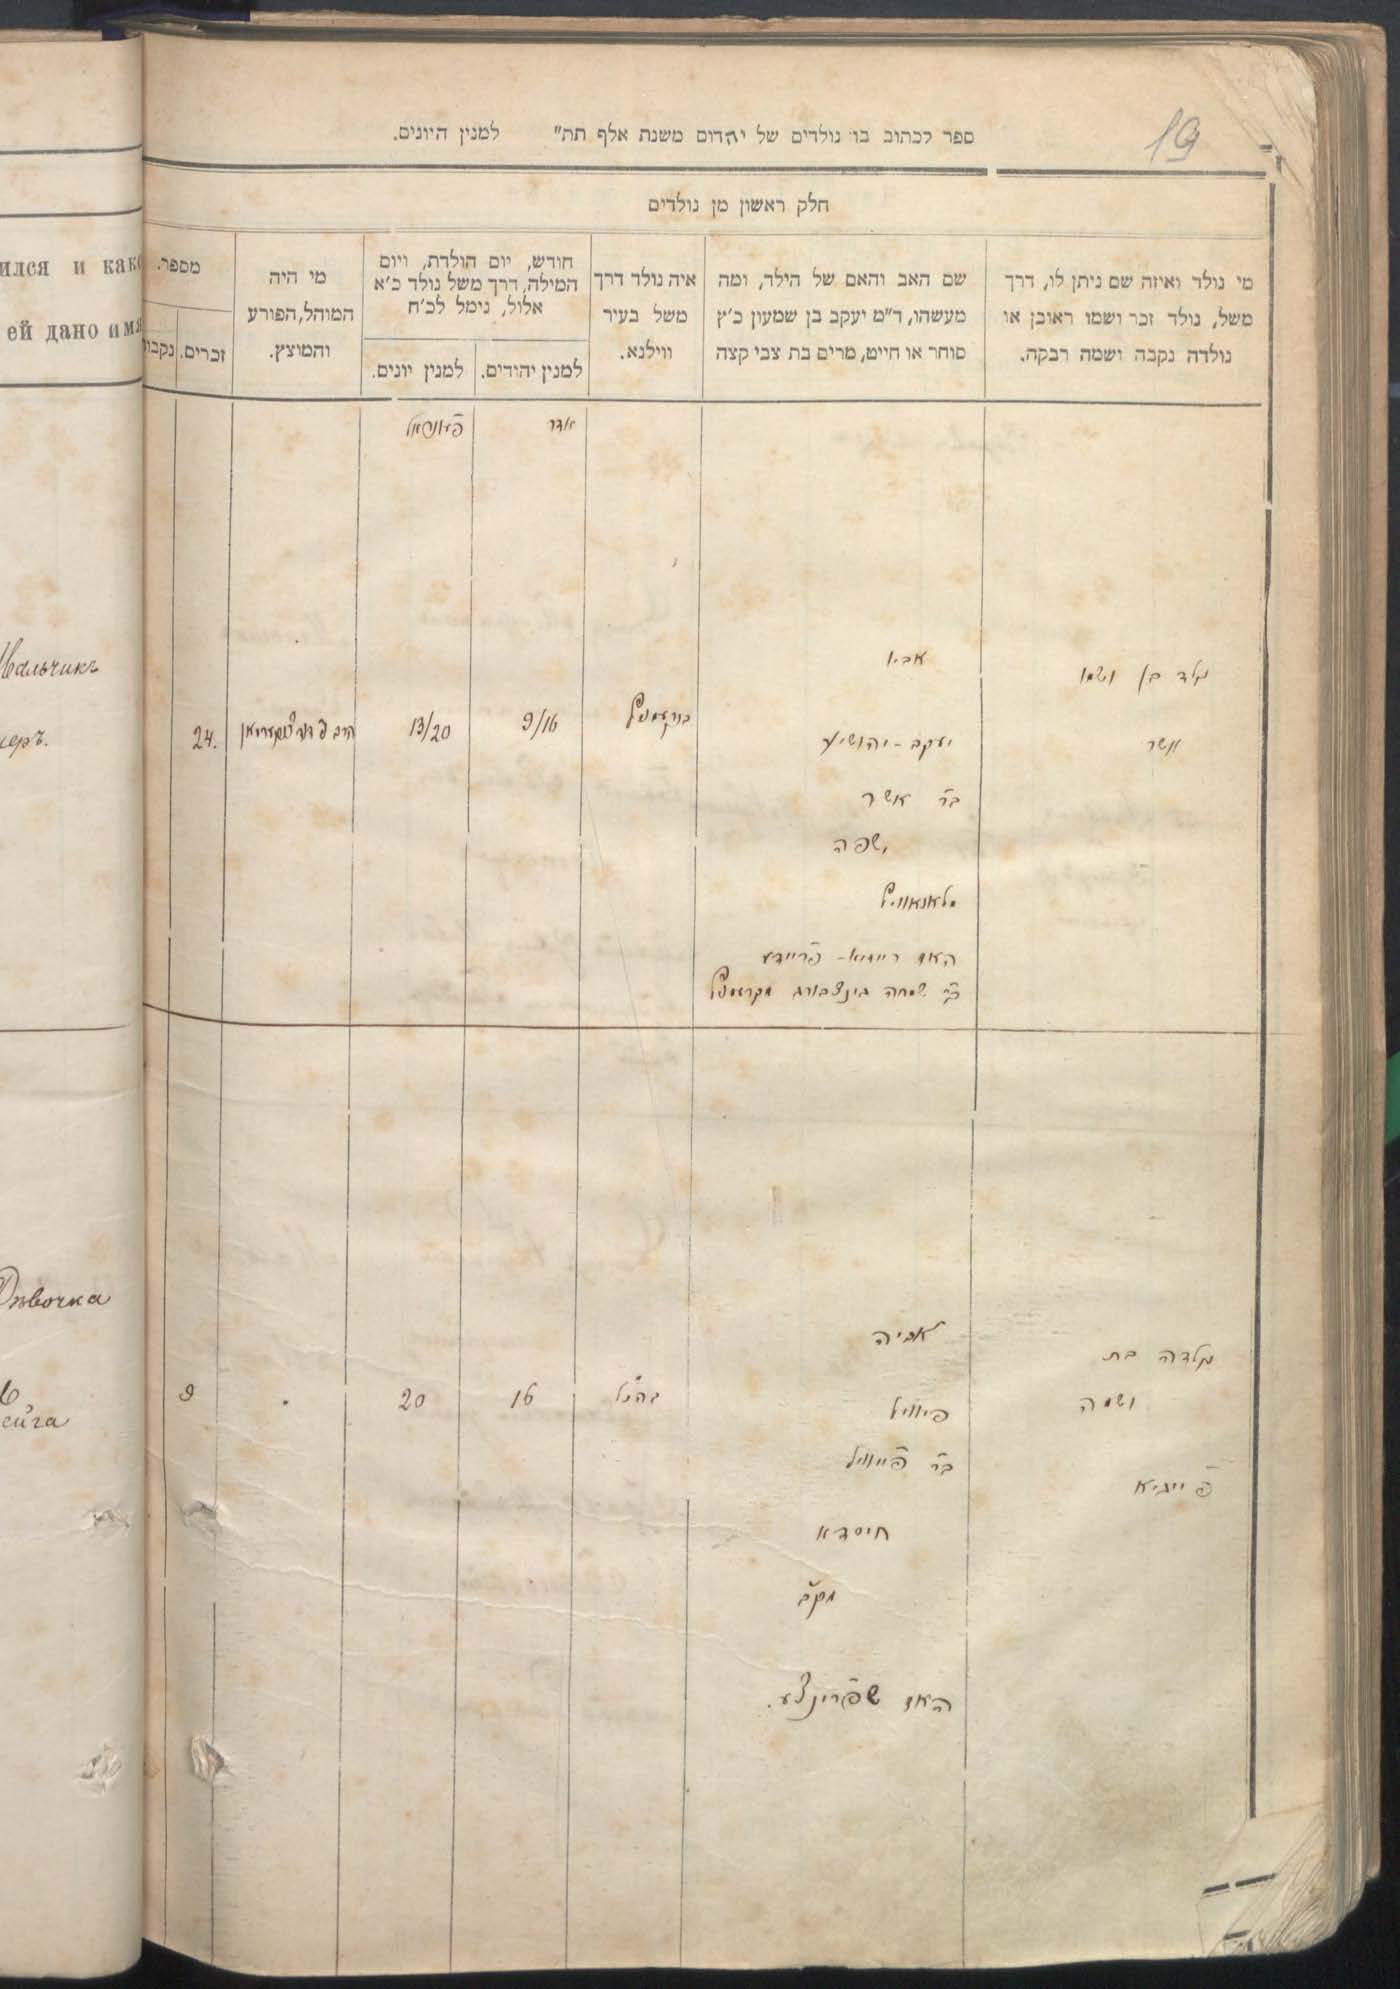 19
ספר לכתוב בו נולדים של יהדום משנת אלף תת" למנין היונים.
חלק ראשון מן נולדים
מי נולד ואיזה שם ניתן לו, דרך
משל, נולד זכר ושמו ראובן או
נולדה נקבה ושמה רבקה.
שם האב והאם של הילד, ומה
מעשהו, ד"מ יעקב בן שמעון כ'ץ
סוחר או חייט, מרים בת צבי קצה
איה נולד דרך
משל בעיר
ווילנא.
חודש, יום הולדת, ויום
המילה, דרך משל נולד כ'א
אלול, נימל לכ'ח
למנין יהודים.
למנין יונים.
מי היה
המוהל, הפורע
והמוצץ.
מספר.
זכרים.
נקבו
ился и како
ей дано имя
אדר
Мальчикъ
херъ.
נולד בן ושמו
אשר
אביו
יעקב-יהושיע
בר אשר
שפה
האם ריידיא-פריידע
בר שמחה גינצבורג
9/16
13/20
24.
Дѣвочка
ейга
נולדה בת
ושמה
פייגיא
אביה
פייוויל
בר פייוויל
חיסדא
האם שפרינצע.
בהנ"ל
16
20
9